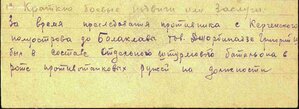 Краткие боевые подвиги или заслуги
За время преследования противника с Керченского
полуострова до Балаклава Тов. Джорбинадзе
был в составе Отдельного штурмового батальона в
роте противотанковых ружей на должности